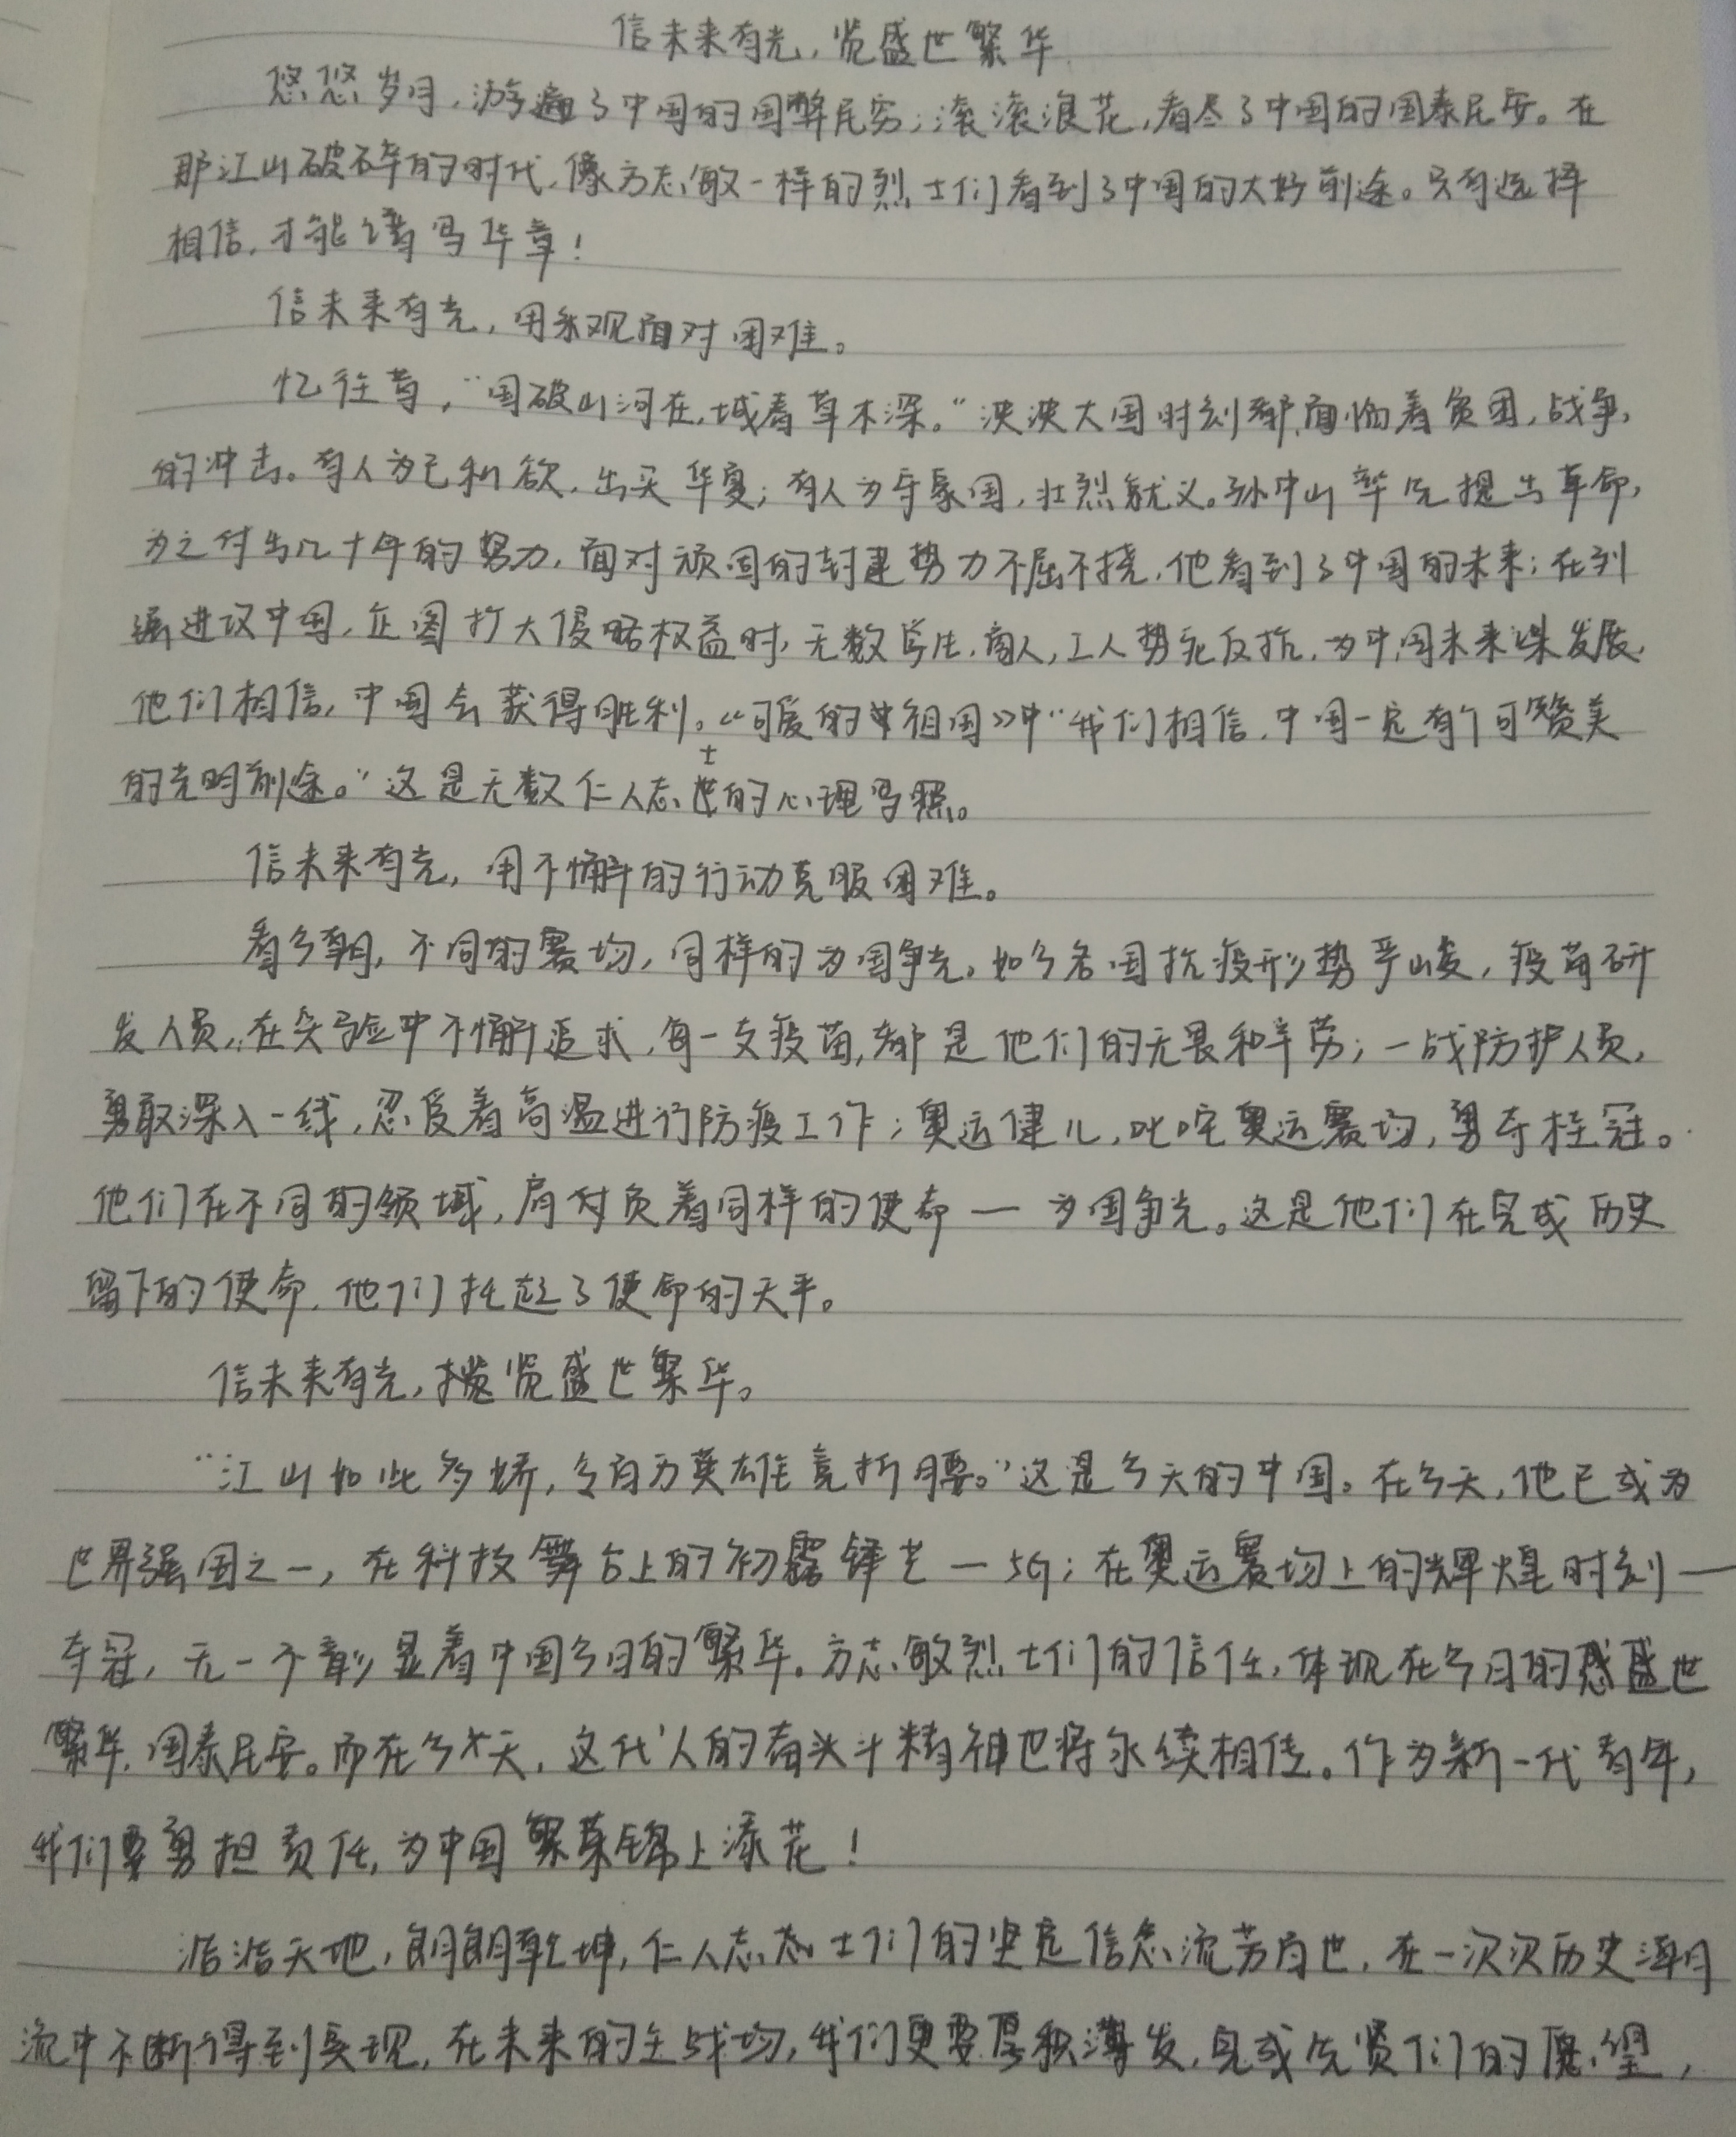 信未来有光，览盛世繁华
悠悠岁月，游遍了中国的国弊民穷；滚滚浪花，看尽了中国的国泰民安。在
那江山破碎的时代，像方志敏一样的烈士们看到了中国的大好前途。只有选择
相信，才能谱写华章！
信未来有光，用乐观面对困难。
忆往昔，“国破山河在，城春草木深。”泱泱大国时刻都面临着贫困，战争，
的冲击。有人为己利欲，出买华夏；有人为守家国，壮烈就义。孙中山率先提出革命，
为之付出几十年的努力，面对顽固的封建势力不屈不挠，他看到了中国的未来；在列
强进攻中国，企图扩大侵略权益时，无数学生，商人，工人势死反抗，为中国未来谋发展，
他们相信，中国会获得胜利。《可爱的祖国》中“我们相信，中国一定有个可赞美
的光明前途。”这是无数仁人志士的心理写照。
信未来有光，用不懈的行动克服困难。
看今朝，不同的赛场，同样的为国争光。如今各国抗疫形势严峻，疫苗研
发人员，在实验中不懈追求，每一支疫苗，都是他们的无畏和辛劳；一战防护人员，
勇敢深入一线，忍受着高温进行防疫工作；奥运健儿，叱咤奥运赛场，勇夺桂冠。
他们在不同的领域，肩付负着同样的使命一为国争光。这是他们在完成历史
留下的使命，他们托起了使命的天平。
信未来有光，揽览盛世繁华。
“江山如此多娇，令百万英雄竞折腰。”这是今天的中国。在今天，他已成为
世界强国之一，在科技舞台上的初露锋芒一5G；在奥运赛场上的辉煌时刻一
夺冠，无一不彰显着中国今日的繁华。方志敏烈士们的信任，体现在今日的盛世
繁华，国泰民安。而在今天，这代人的奋斗精神也将永续相传。作为新一代青年，
我们要勇担责任，为中国繁荣锦上添花！
浩浩天地，朗朗乾坤，仁人志士们的坚定信念流芳百世，在一次次历史潮
流中不断得到实现，在未来的主战场，我们更要厚积薄发，完成先贤们的愿望，